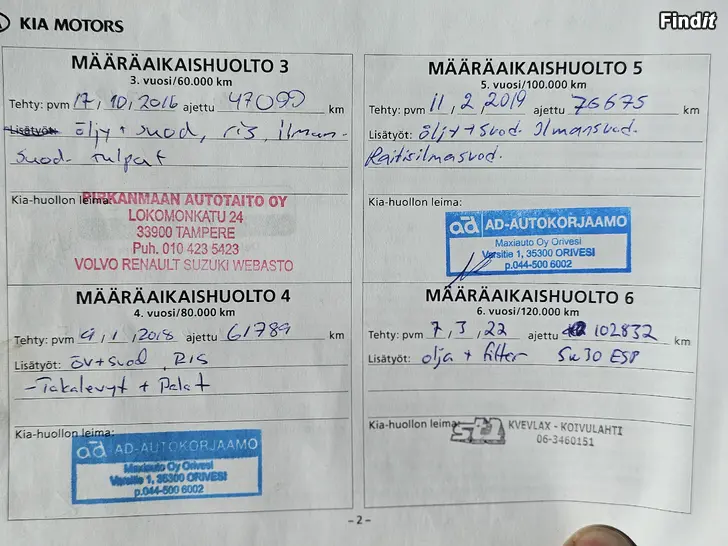 Findit
KIA MOTORS
MÄÄRÄAIKAISHUOLTO 3
3. vuosi/60.000 km
Tehty: pvm 17, 10, 2016 ajettu 47090 km
Lisätyöt: öljy + suod, ris, ilman-
suod. tulpat
Kia-huollon leima:
PIRKANMAAN AUTOTAITO OY
LOKOMONKATU 24
33900 TAMPERE
Puh. 010 423 5423
VOLVO RENAULT SUZUKI WEBASTO
MÄÄRÄAIKAISHUOLTO 4
4. vuosi/80.000 km
Tehty: pvm 9, 1, 2018 ajettu 61789 km
Lisätyöt: öv+suod, RIS
-Takalevyt + Palat
Kia-huollon leima:
ad AD-AUTOKORJAAMO
Maxiauto Oy Orivesi
Varsitie 1, 35300 ORIVESI
p.044-500 6002
MÄÄRÄAIKAISHUOLTO 5
5. vuosi/100.000 km
Tehty: pvm 11, 2, 2019 ajettu 76675 km
Lisätyöt: öljy+suod. Ilmansuod.
Raitisilmasuod.
Kia-huollon leima:
ad AD-AUTOKORJAAMO
Maxiauto Oy Orivesi
Varsitie 1, 35300 ORIVESI
p.044-500 6002
MÄÄRÄAIKAISHUOLTO 6
6. vuosi/120.000 km
Tehty: pvm 7, 3, 22 ajettu 102832 km
Lisätyöt: olja + filter 5w30 ESP
Kia-huollon leima:
KVEVLAX - KOIVULAHTI
06-3460151
-2-